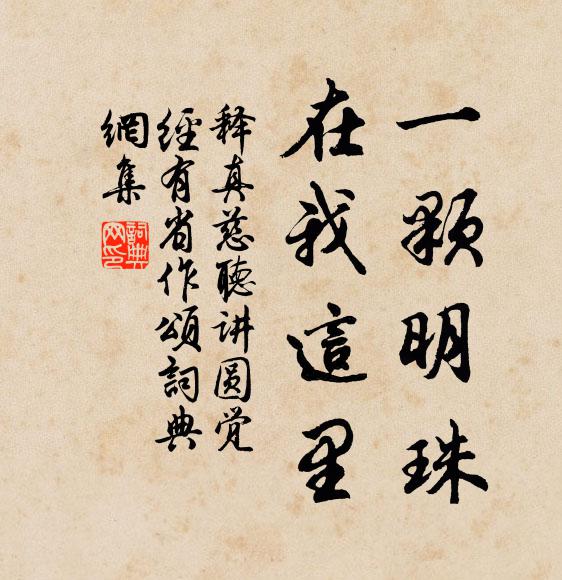 一顆明珠
在我這里
释真慈聽讲圆觉
經有省作頌詞典
網集
詞典
网印